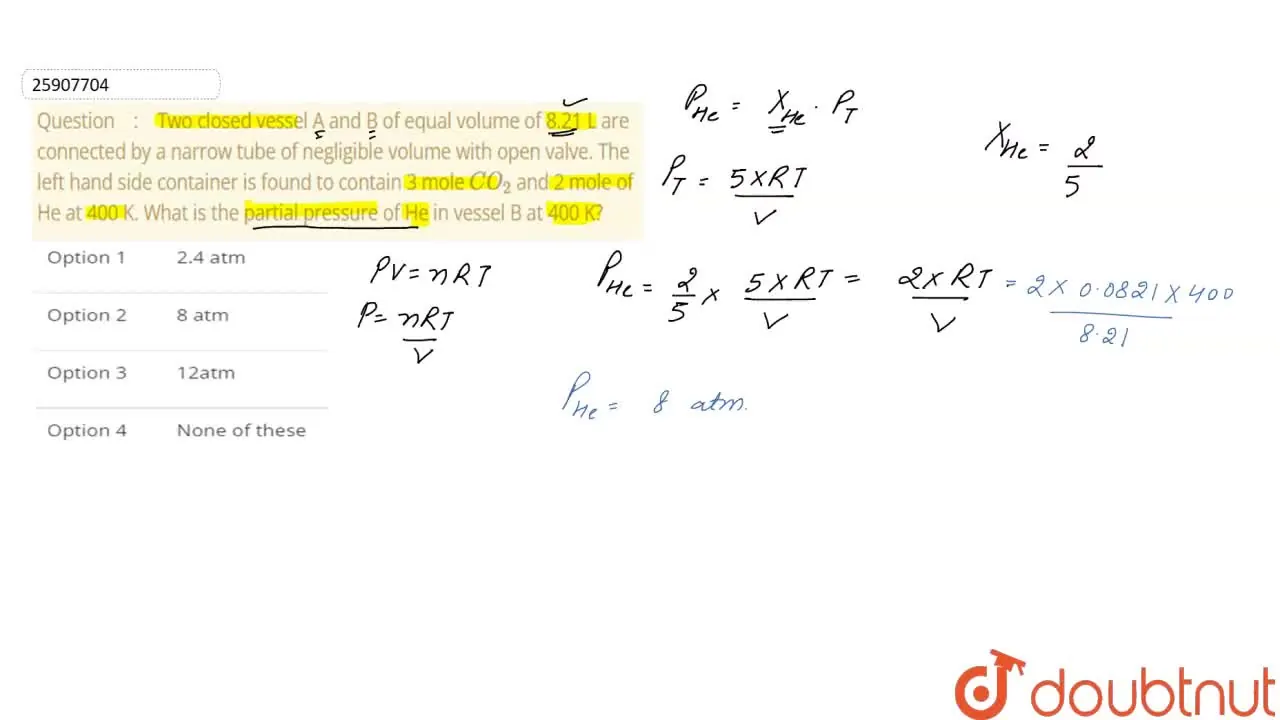 25907704
Question : Two closed vessel A and B of equal volume of 8.21 L are
connected by a narrow tube of negligible volume with open valve. The
left hand side container is found to contain 3 mole CO₂ and 2 mole of
He at 400 K. What is the partial pressure of He in vessel B at 400 K?
Option 1 2.4 atm
Option 2 8 atm
Option 3 12atm
Option 4 None of these
P_He = X_He · P_T
X_He = 2/5
P_T = 5×RT/V
PV = nRT
P = nRT/V
P_He = 2/5 × 5×RT/V = 2×RT/V = 2×0.0821×400/8.21
P_He = 8 atm.
doubtnut